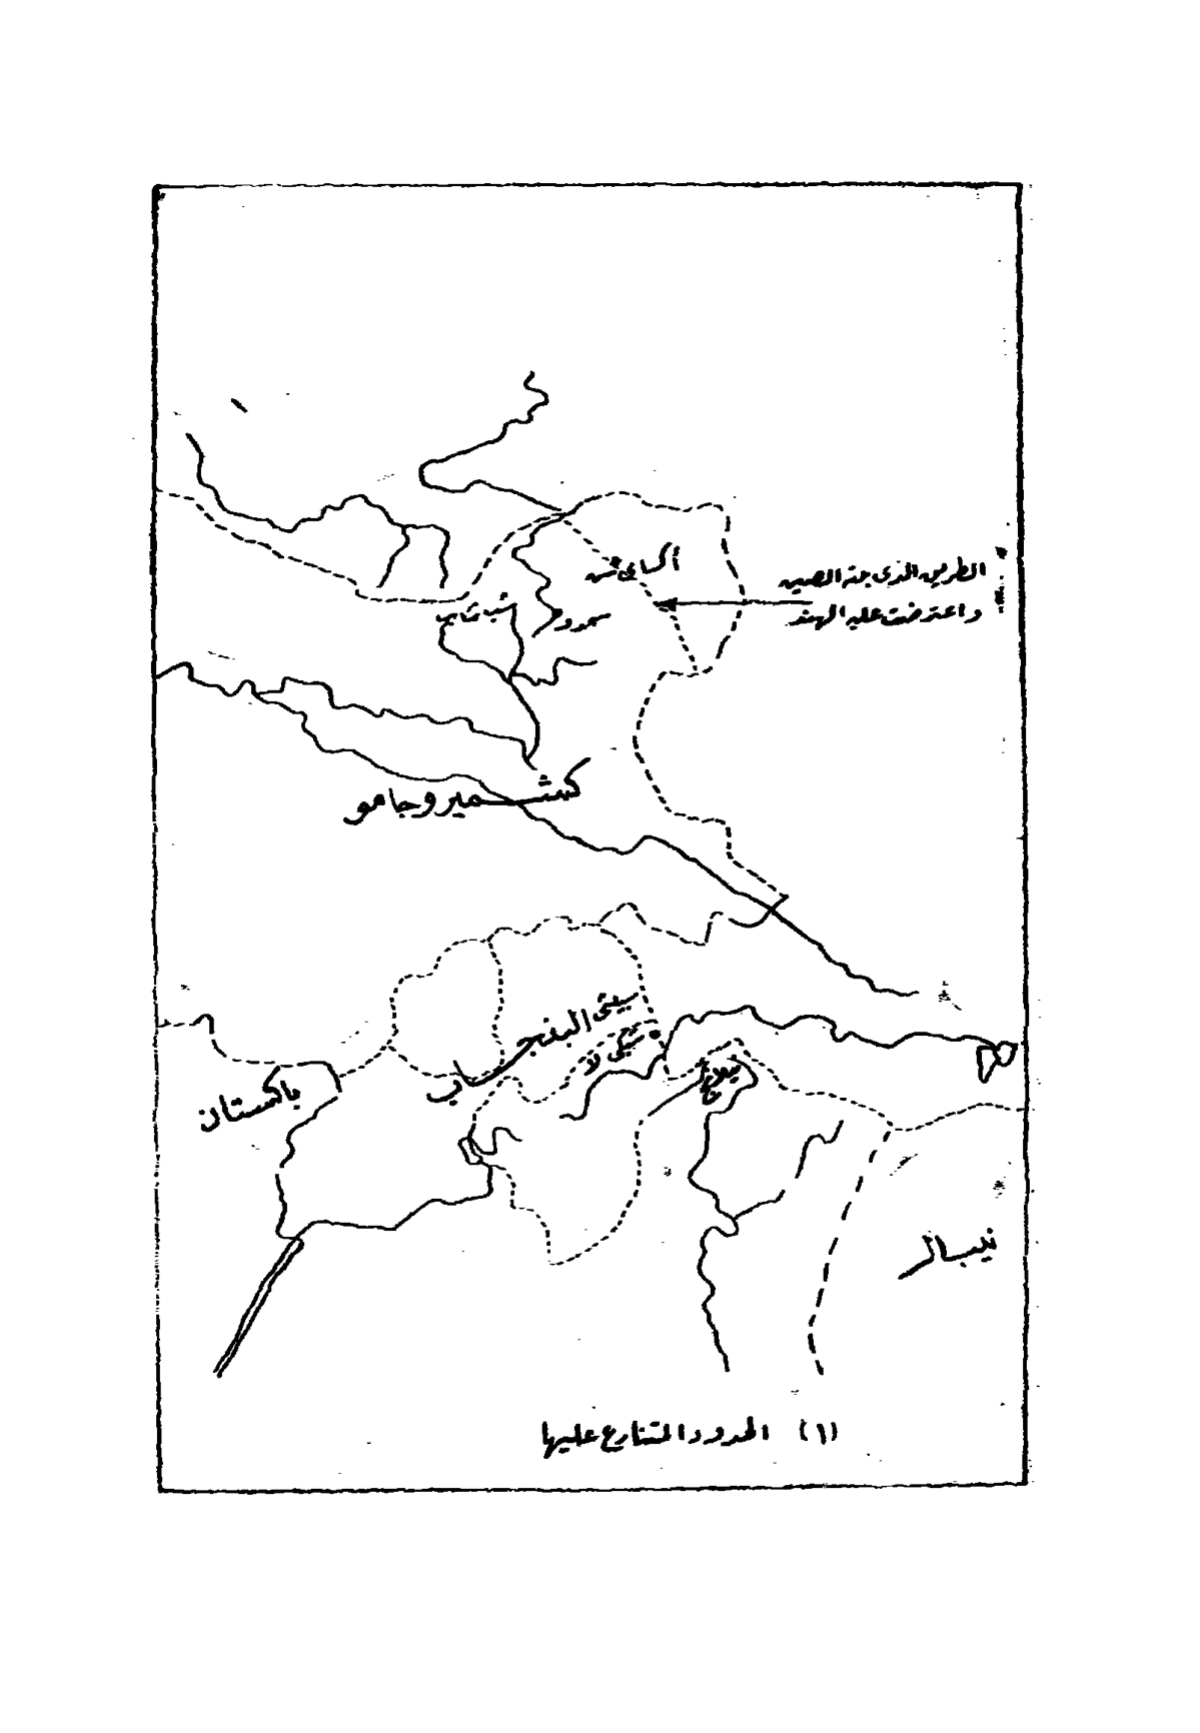 أكساى
الطريق الذى بنته الصين
واعترضت عليه الهند
كشمير وجامو
سيتى البنجاب
شبكى لا
باكستان
نيبال
(١) الحدود المتنازع عليها